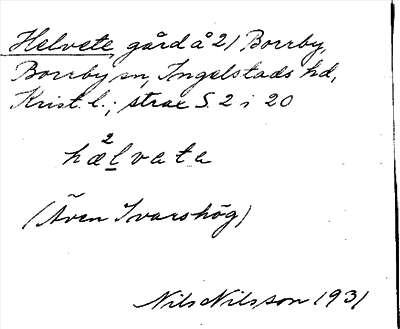 Helvete, gård å 21 Borrby,
Borrby sn, Ingelstads hd,
Krist. l.; strax S. 2 i 20
hæ²lvata
(Även Ivarshög)
Nils Nilsson 1931